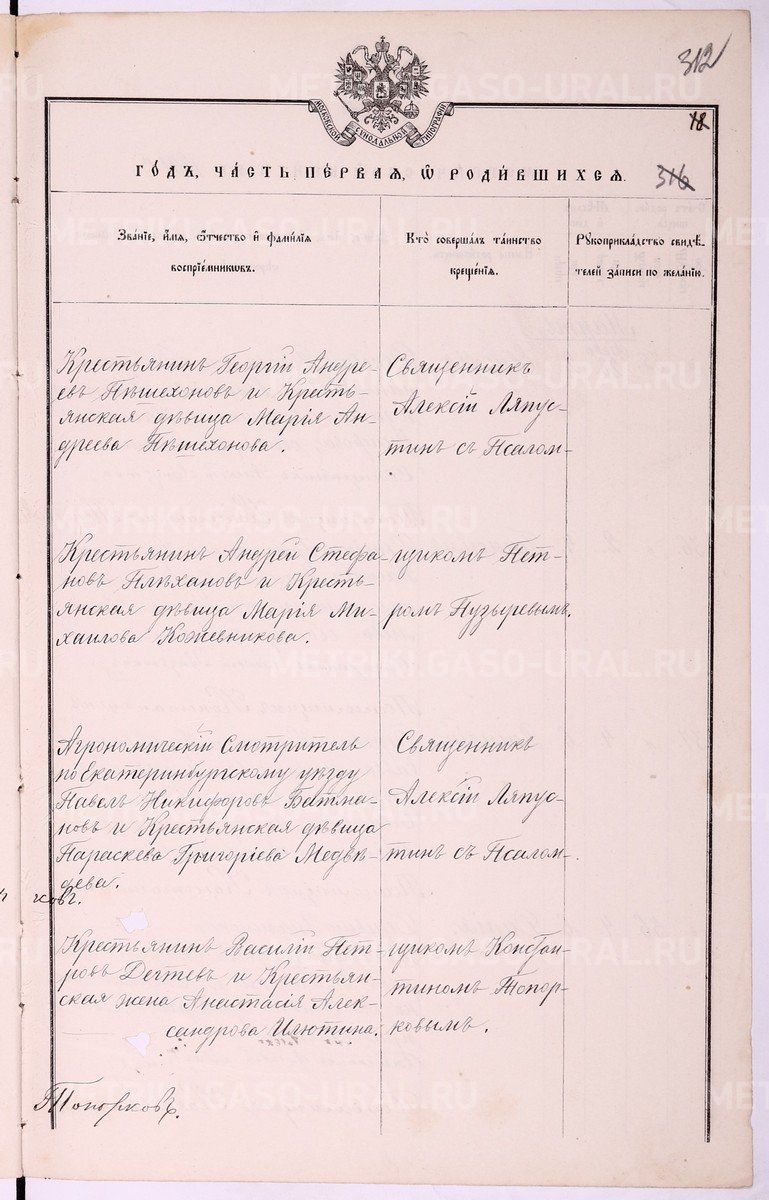 312
МОСКОВСКОЙ СѴНОДАЛЬНОЙ ТИПОГРАФІИ
18
ГО́ДЪ, ЧА́СТЬ ПЕ́РВАЯ, Ѡ РОДИ́ВШИХСЯ.
316
Зва́нїе, и́мя, ѻ҆́тчество и҆ фами́лїѧ
воспрїе́мникѡвъ.
Кто̀ соверша́лъ та́инство
креще́нїѧ.
Рꙋкоприкла́дство свидѣ́-
телей за́писи по жела́нїю.
Крестьянинъ Георгій Андре-
евъ Пѣшехоновъ и Кресть-
янская дѣвица Марія Ан-
дреева Пѣшехонова.
Священникъ
Алексій Ляпус-
тинъ съ Псалом-
Крестьянинъ Андрей Стефа-
новъ Плѣхановъ и Кресть-
янская дѣвица Марія Ми-
хаилова Кожевникова.
щикомъ Пет-
ромъ Пузыревымъ.
Агрономическій Смотритель
по Екатеринбургскому уѣзду
Павелъ Никифоровъ Батма-
новъ и Крестьянская дѣвица
Параскева Григоріева Медвѣ-
дева.
Священникъ
Алексій Ляпус-
тинъ съ Псалом-
ковъ.
Крестьянинъ Василій Пет-
ровъ Дегтевъ и Крестьян-
ская жена Анастасія Алек-
сандрова Илютина.
щикомъ Констан-
тиномъ Топор-
ковымъ.
Топорковъ.
METRIKI.GASO-URAL.RU